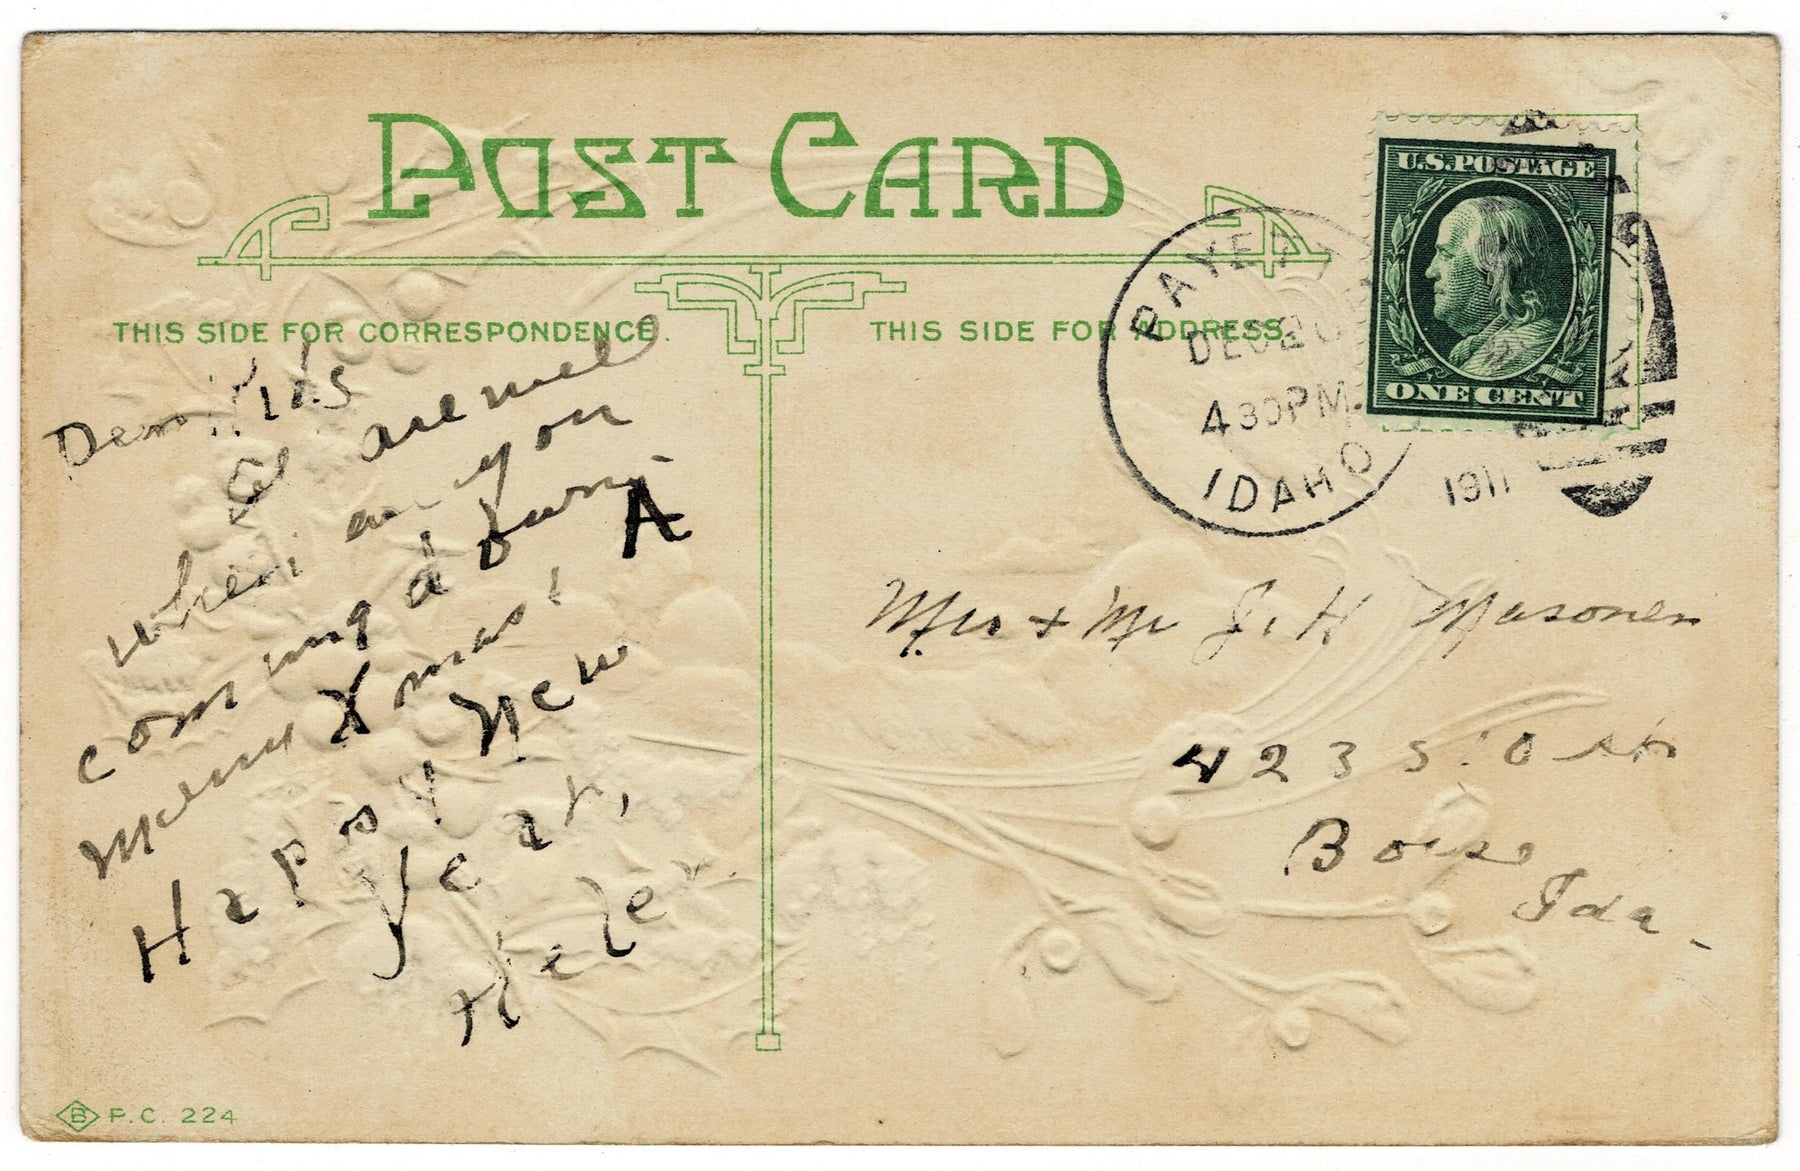 POST CARD
THIS SIDE FOR CORRESPONDENCE.
THIS SIDE FOR ADDRESS.
U.S.POSTAGE
ONE CENT
PAYETT
DEC
4 30PM.
IDAHO
1911
Dear Kids
all are well
when are you
coming down.
A
Merry Xmas!
Happy New
Year,
Helen
Mrs + Mr J. H Masonen
423 S.
Boise
Ida-
B P.C. 224